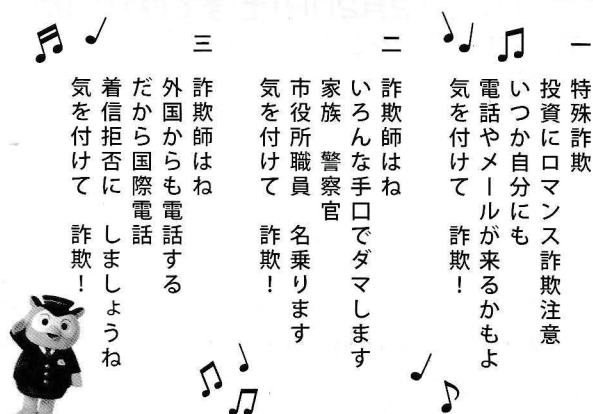 一
特殊詐欺
投資にロマンス詐欺注意
いつか自分にも
電話やメールが来るかもよ
気を付けて　詐欺！
二
詐欺師はね
いろんな手口でダマします
家族　警察官
市役所職員　名乗ります
気を付けて　詐欺！
三
詐欺師はね
外国からも電話する
だから国際電話
着信拒否に　しましょうね
気を付けて　詐欺！